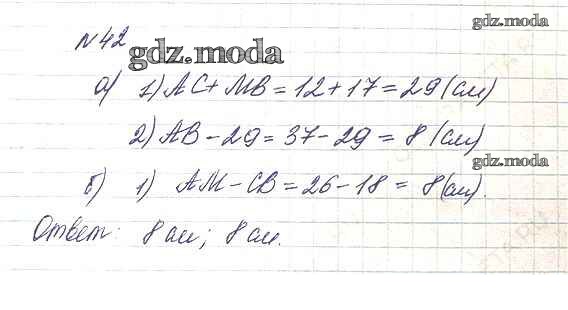 gdz.moda
№42
gdz.moda
а) 1) AC + MB = 12 + 17 = 29 (см)
2) AB - 29 = 37 - 29 = 8 (см)
gdz.moda
б) 1) AM - CB = 26 - 18 = 8 (см).
Ответ: 8 см; 8 см.